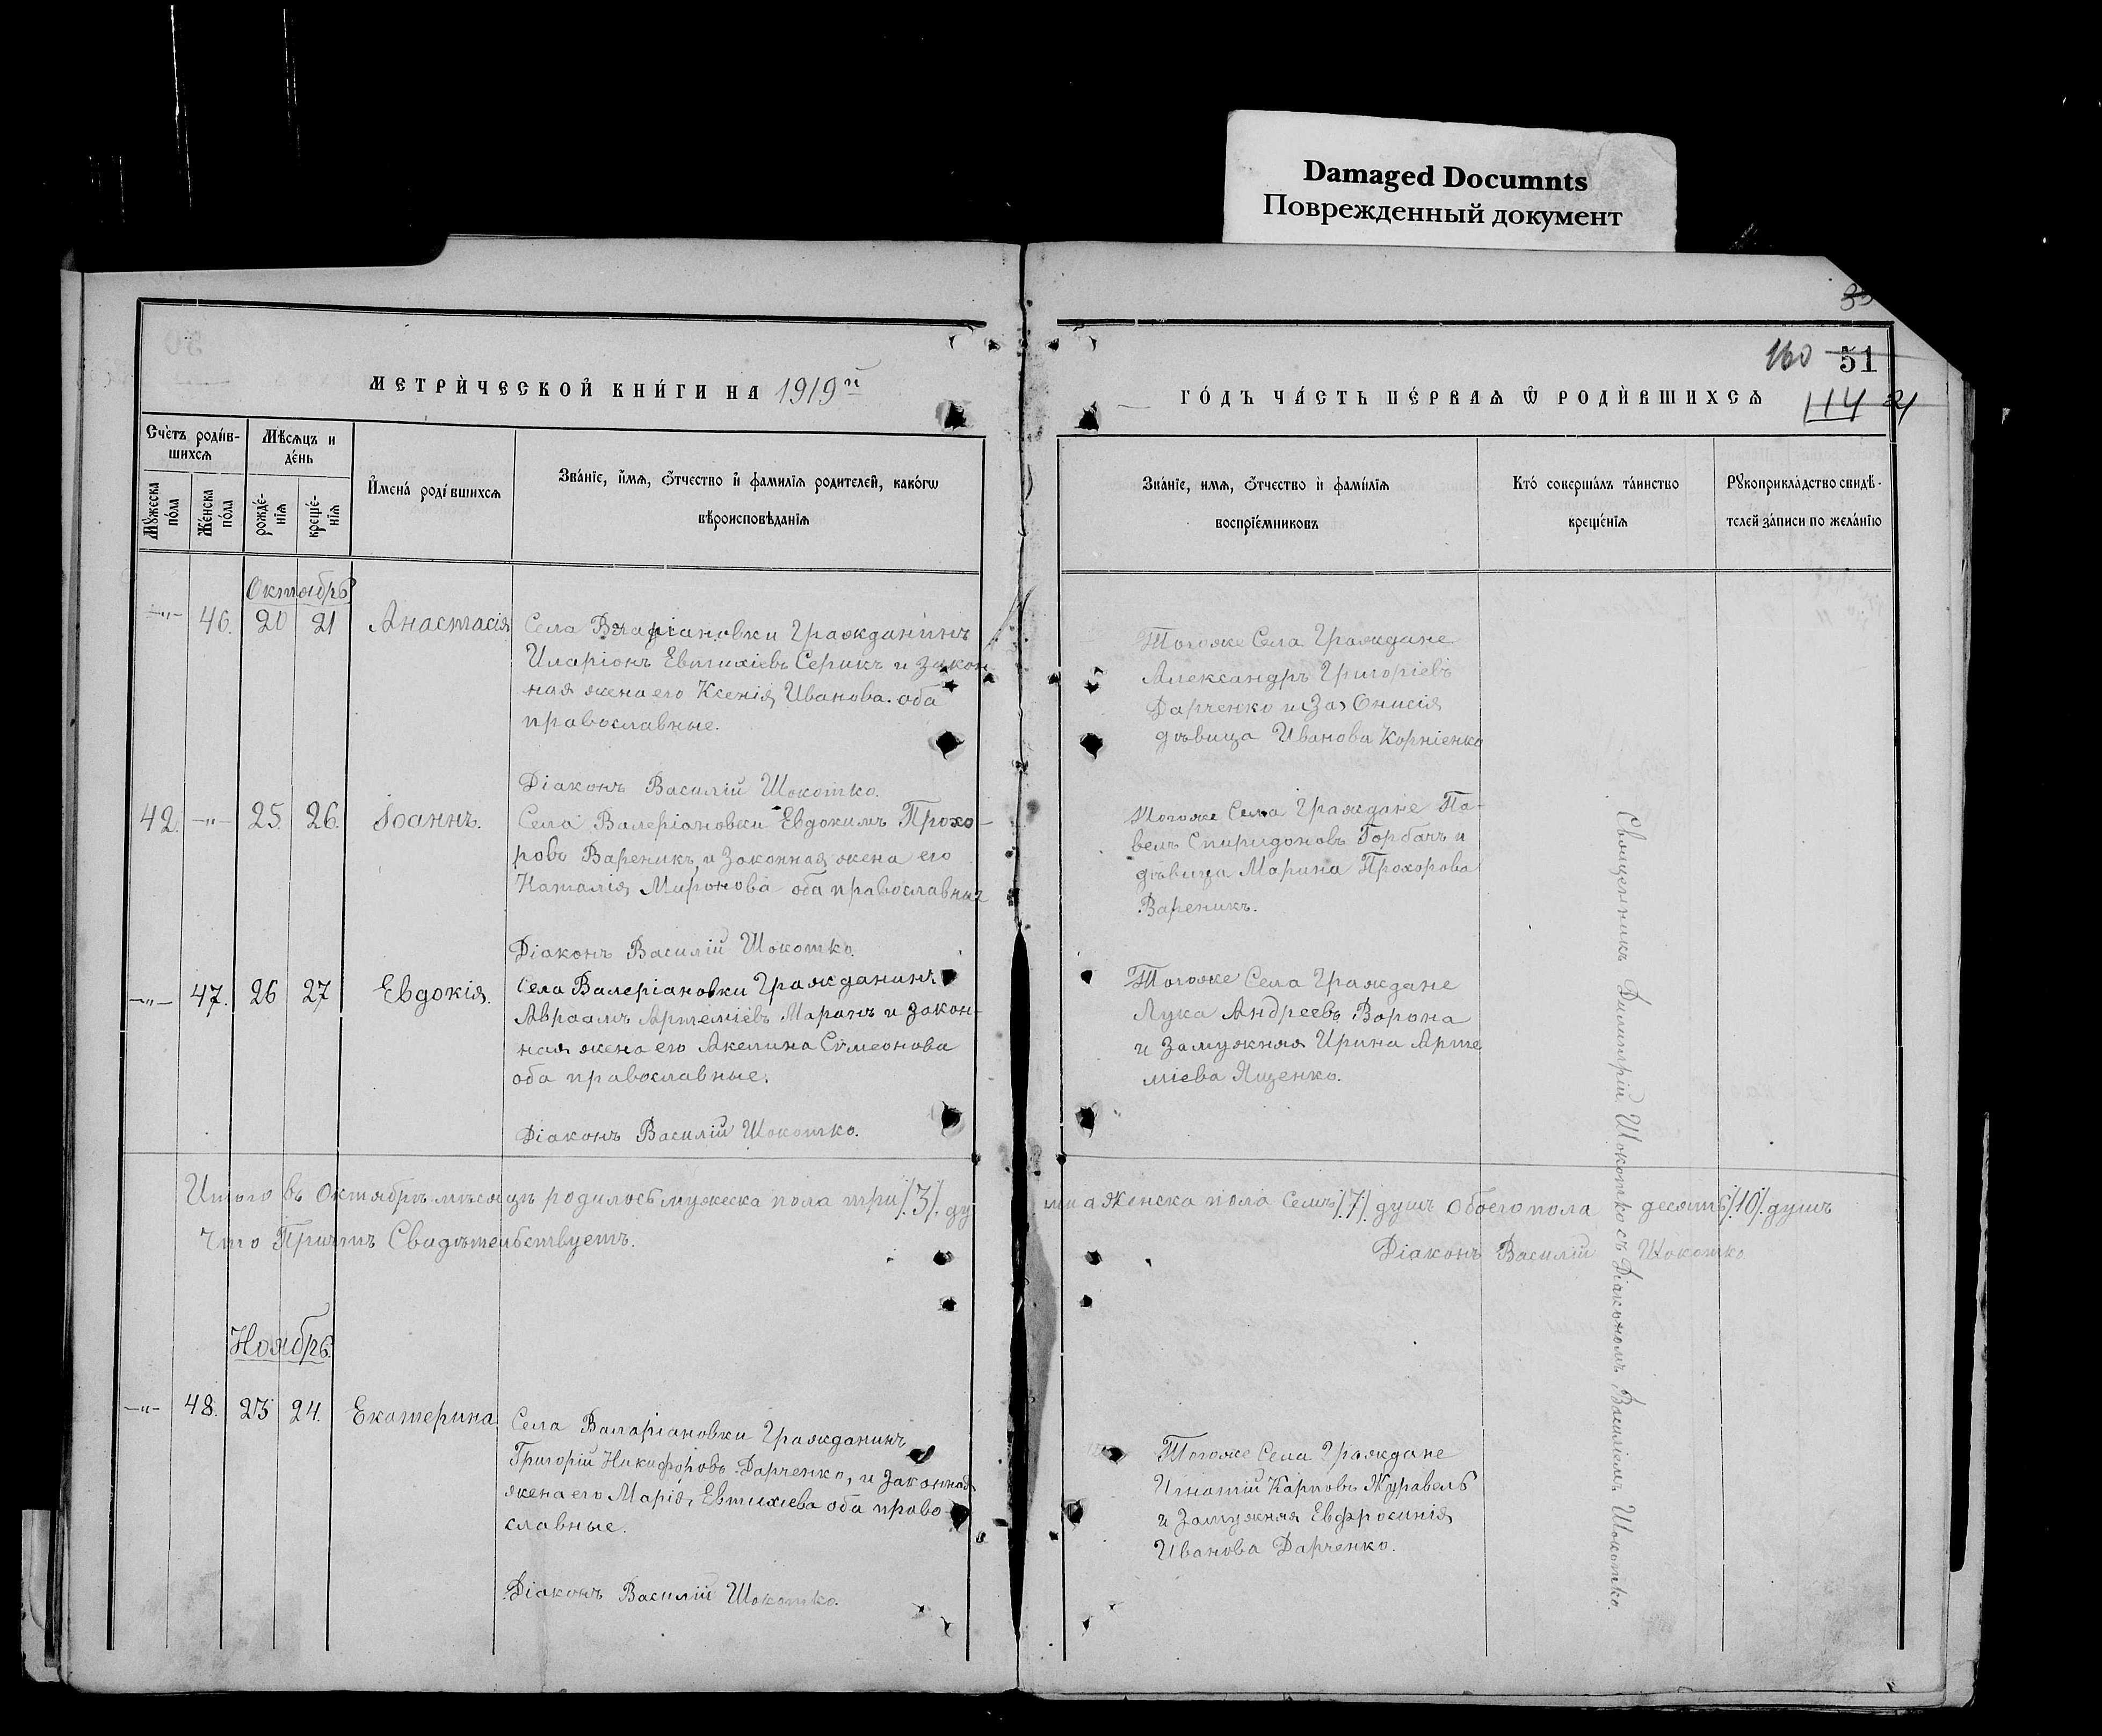 Damaged Documnts
Поврежденный документ
160 51
114
МЕТРИ́ЧЕСКОЙ КНИ́ГИ НА 1919й
ГО́ДЪ ЧА́СТЬ ПЕ́РВАѦ Ѿ РОДИ́ВШИХСѦ
Сче́тъ роди́в-
шихсѧ
Мѣ́сѧцъ и
де́нь
Му́жеска
по́ла
Же́нска
по́ла
рожде́-
нїѧ
креще́-
нїѧ
И҆мена̀ роди́вшихсѧ
Зва́нїе, и҆́мѧ, ѻ҆́тчество и҆ фамилїѧ родителей, како́гѡ
вѣроисповѣ́данїѧ
Зва́нїе, имѧ, ѻ҆́тчество и҆ фами́лїѧ
воспрїе́мниковъ
Кто́ соверша́лъ та́инство
креще́нїѧ
Рꙋкоприкла́дство свидѣ́-
телей за́писи по жела́нїю
Октябрь
—„— 46. 20 21 Анастасія
Села Валаріановки Гражданинъ
Иларіонъ Евтихіевъ Серикъ и закон
ная жена его Ксенія Иванова. оба
православные.
Діаконъ Василій Шокотко.
Тогоже Села Граждане
Александръ Григоріевъ
Дарченко и Онисія
дѣвица Иванова Корніенко
42. —„— 25. 26. Іоаннъ.
Села Валеріановки Евдокимъ Прохо-
ровъ Вареникъ и Законная жена его
Наталія Миронова оба православные
Діаконъ Василій Шокотко.
Тогоже Села Граждане Па-
велъ Спиридоновъ Горбачъ и
дѣвица Марина Прохорова
Вареникъ.
—„— 47. 26 27 Евдокія.
Села Валеріановки Гражданинъ
Авраамъ Артеміевъ Маранъ и закон-
ная жена его Акелина Симеонова
оба православные.
Діаконъ Василій Шокотко.
Тогоже Села Граждане
Лука Андреевъ Ворона
и Замужняя Ирина Арте
міева Ященко.
Итого въ Октябрѣ мѣсяцѣ родилось мужеска пола три /.3/. ду
ши а женска пола Семь /.7/. душъ Обоего пола десять /.10/. душъ
Что Причтъ Свидѣтельствуетъ.
Діаконъ Василій Шокотко
Ноябрь.
—„— 48. 23 24. Екатерина
Села Валаріановки Гражданинъ
Григорій Никифоровъ Дарченко, и Законная
жена его Марія Евтихіева оба право-
славные.
Діаконъ Василій Шокотко.
Тогоже Села Граждане
Игнатій Карповъ Журавель
и Замужняя Евфросинія
Иванова Дарченко.
Священникъ Димитрій Шокотко съ Діакономъ Василіемъ Шокотко.